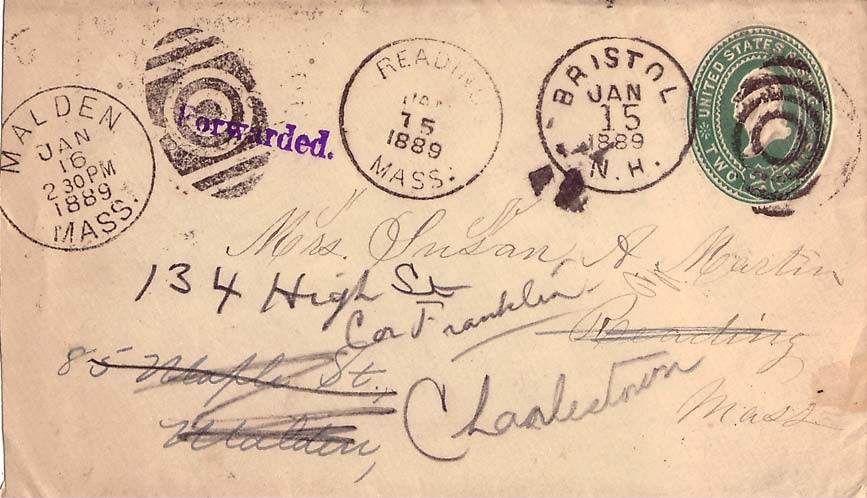 MALDEN
JAN
16
2 30 PM
1889
MASS.
Forwarded.
READING
JAN
15
1889
MASS.
BRISTOL
JAN
15
1889
N.H.
UNITED STATES
TWO CENTS
Mrs. Susan A Martin
134 High St
Cor Franklin
Reading
85 Maple St.,
Charlestown
Mass
Malden,